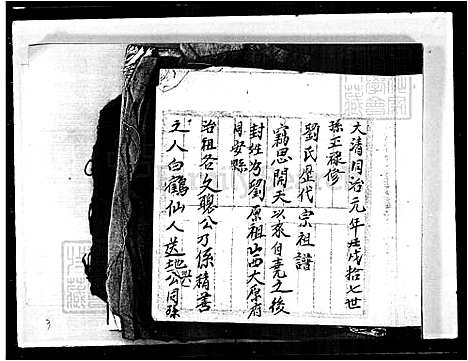 大清同治元年壬戌拾七世
孫玉祿修
劉氏歷代宗祖譜
竊思開天以來自堯之後
封姓為劉原祖山西大原府
同安縣
治祖名文聰公乃係積善
之人白鶴仙人送地與公同孫
3